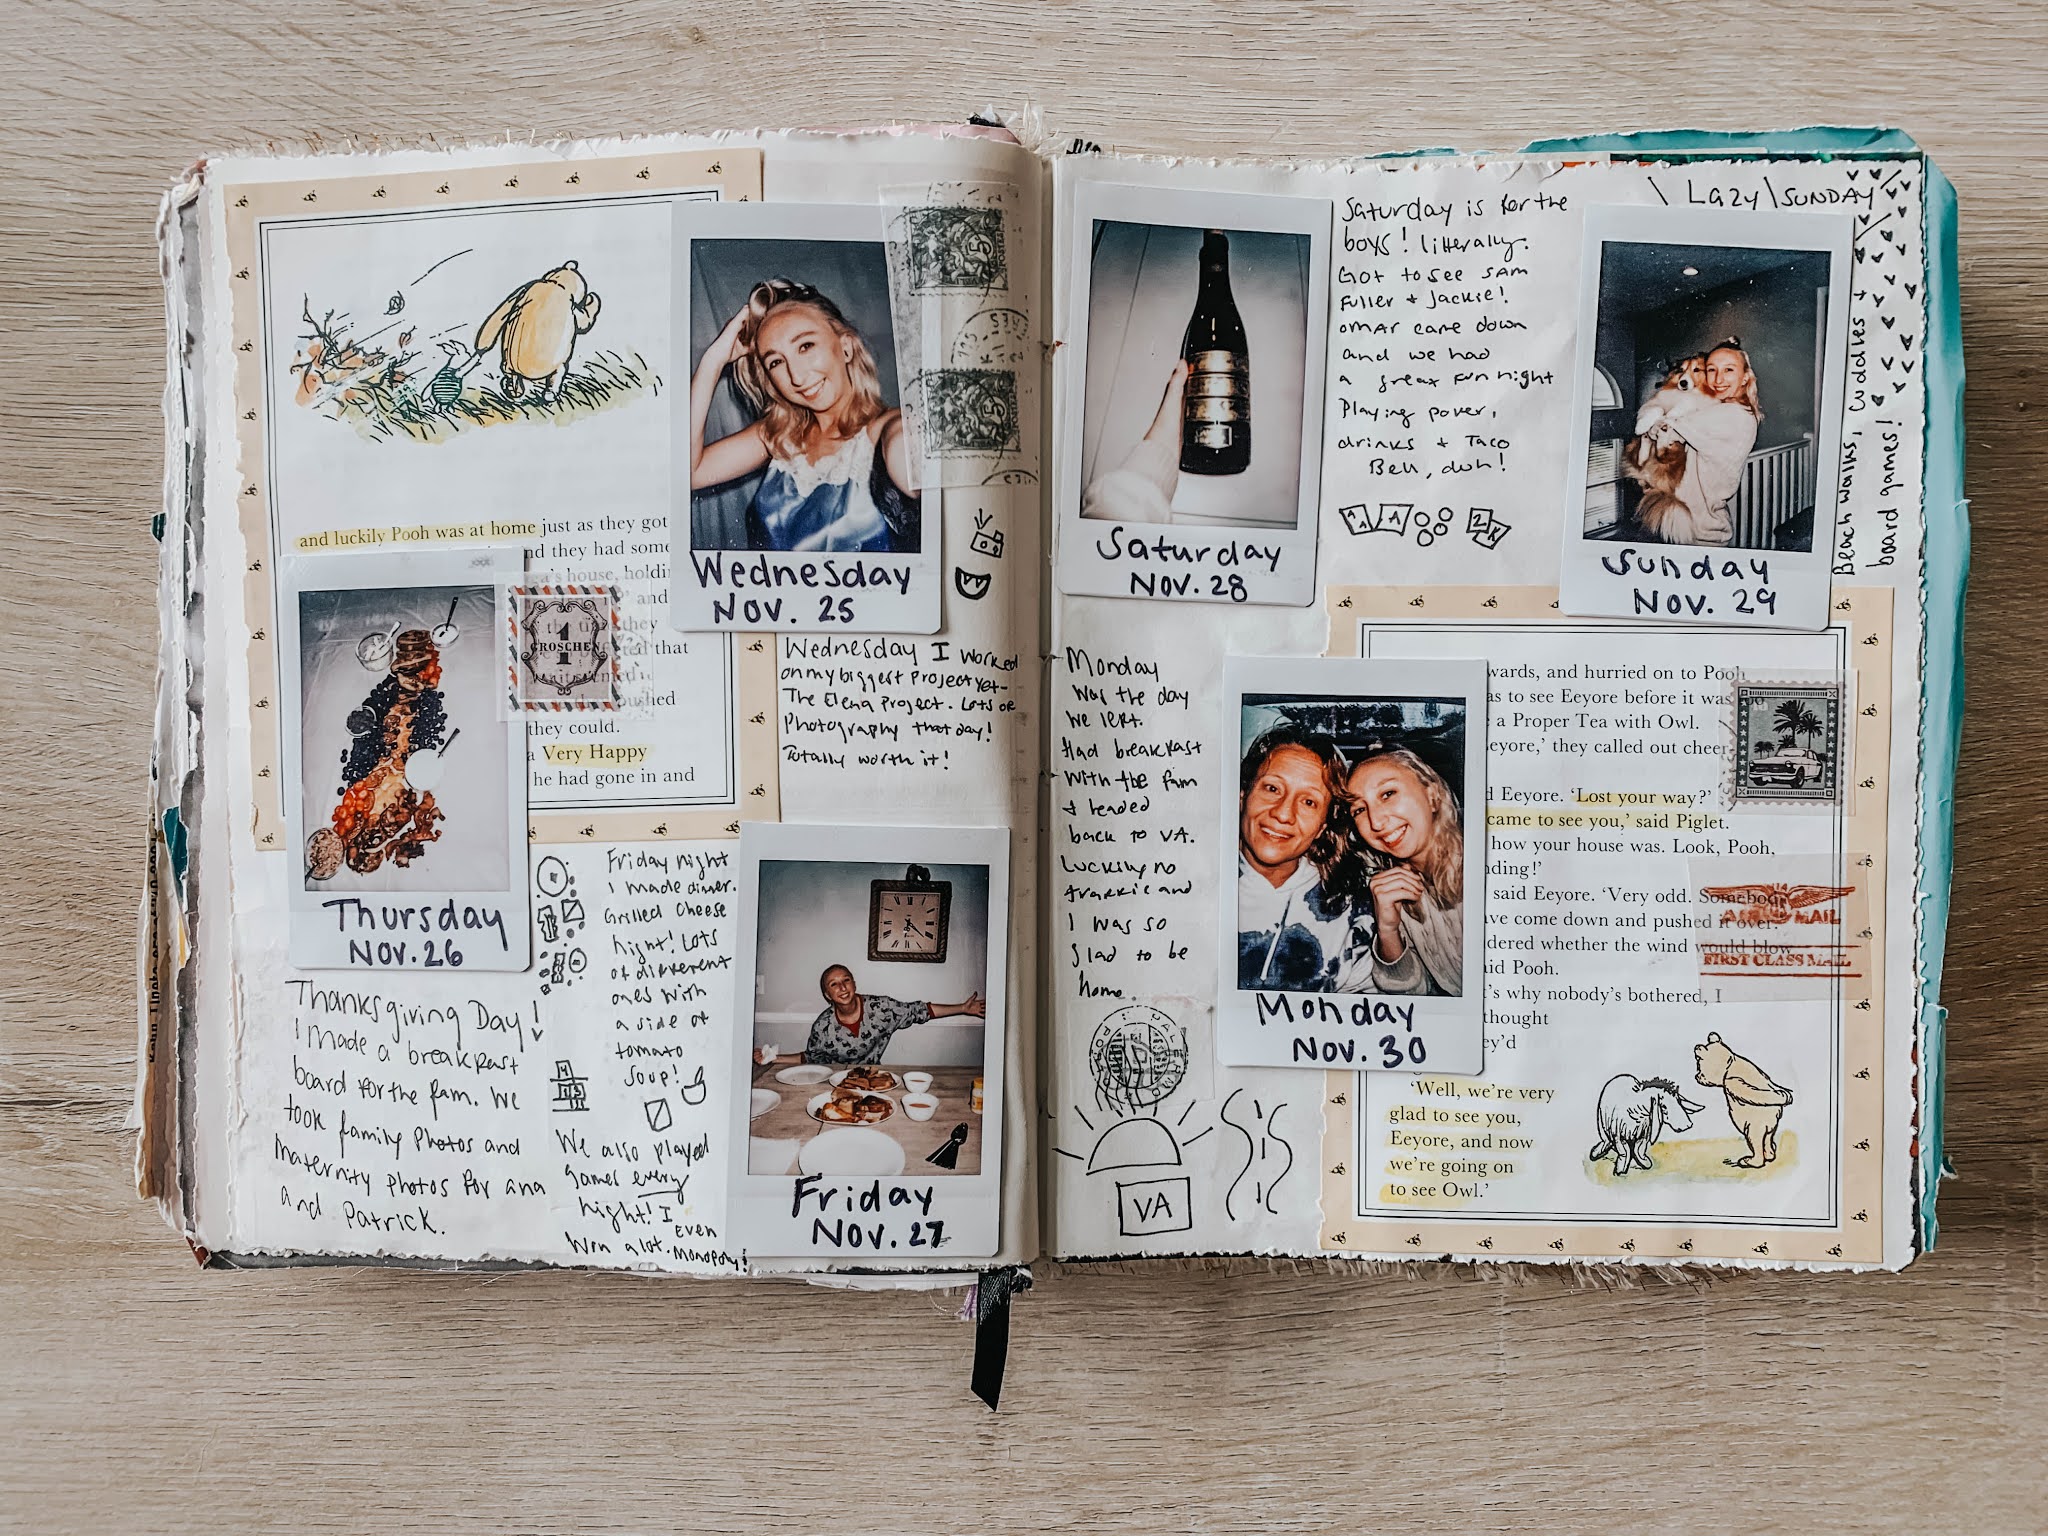 and luckily Pooh was at home just as they got
nd they had some
's house, holdi
and
the time they
ted that
pushed
they could.
a Very Happy
he had gone in and
Wednesday
Nov. 25
Wednesday I worked
on my biggest project yet-
The Elena Project. Lots of
Photography that day!
Totally worth it!
1
GROSCHEN
Thursday
Nov. 26
Thanksgiving Day!
I made a breakfast
board for the fam. We
took family photos and
maternity photos for ana
and Patrick.
Friday night
I made dinner.
Grilled Cheese
night! Lots
of different
ones with
a side of
tomato
soup!
We also played
games every
night! I
won a lot. Even
Monopoly!
Friday
Nov. 27
Saturday
Nov. 28
Saturday is for the
boys! litterally.
Got to see sam
fuller + Jackie!
omar came down
and we had
a great fun night
Playing poker,
drinks + Taco
Bell, duh!
\ Lazy \ SUNDAY /
Sunday
Nov. 29
Beach walks, cuddles +
board games!
Monday
was the day
we left.
Had breakfast
with the fam
+ headed
back to VA.
Lucking no
traffic and
I was so
glad to be
home.
VA
Monday
Nov. 30
wards, and hurried on to Pooh
as to see Eeyore before it was too
e a Proper Tea with Owl.
eyore,' they called out cheer-
d Eeyore. 'Lost your way?'
came to see you,' said Piglet.
how your house was. Look, Pooh,
nding!'
said Eeyore. 'Very odd. Somebody
ave come down and pushed it over.
dered whether the wind would blow
aid Pooh.
t's why nobody's bothered, I
thought
ey'd
VIA
AIR MAIL
FIRST CLASS MAIL
'Well, we're very
glad to see you,
Eeyore, and now
we're going on
to see Owl.'